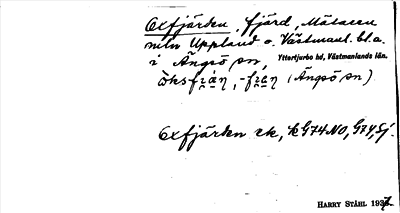 Oxfjärden, fjärd, Mälaren
mln Uppland o. Västmanl. bl.a.
i Ängsö sn, Yttertjurbo hd, Västmanlands län.
(Ängsö sn)
Oxfjärden ek, k G74NO, G74, Sj.
HARRY STÅHL 1937.